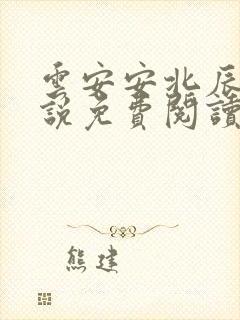 雲安安北辰
說免費閱讀
熊建